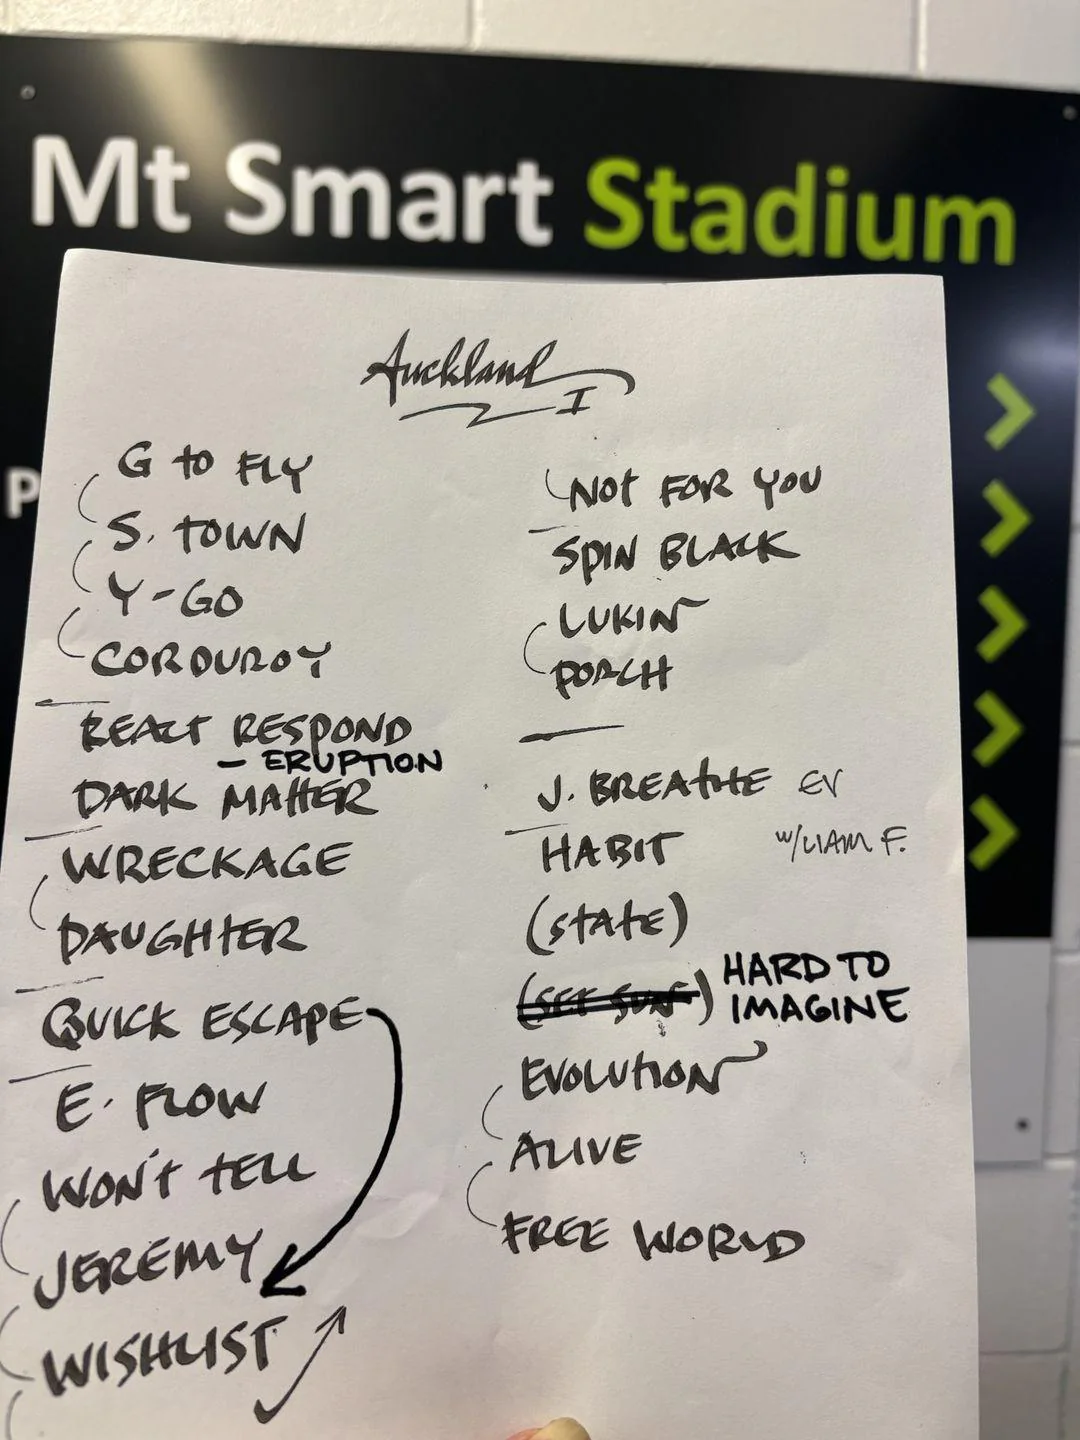 Mt Smart Stadium
P
Auckland
I
G to FLY
S. TOWN
Y-GO
CORDUROY
REACT RESPOND
- ERUPTION
DARK MATTER
WRECKAGE
DAUGHTER
QUICK ESCAPE
E. FLOW
WON'T TELL
JEREMY
WISHLIST
NOT FOR YOU
SPIN BLACK
LUKIN
PORCH
J. BREATHE EV
HABIT w/LIAM F.
(STATE)
(SET SUN) HARD TO
IMAGINE
EVOLUTION
ALIVE
FREE WORLD